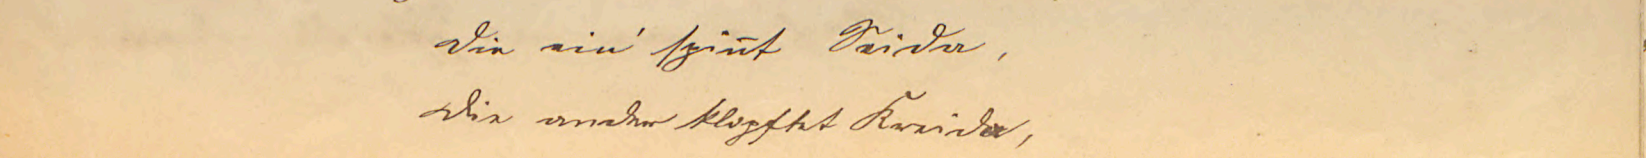 Die ein' spiñt Seida,
Die ander klopftet Kreida,